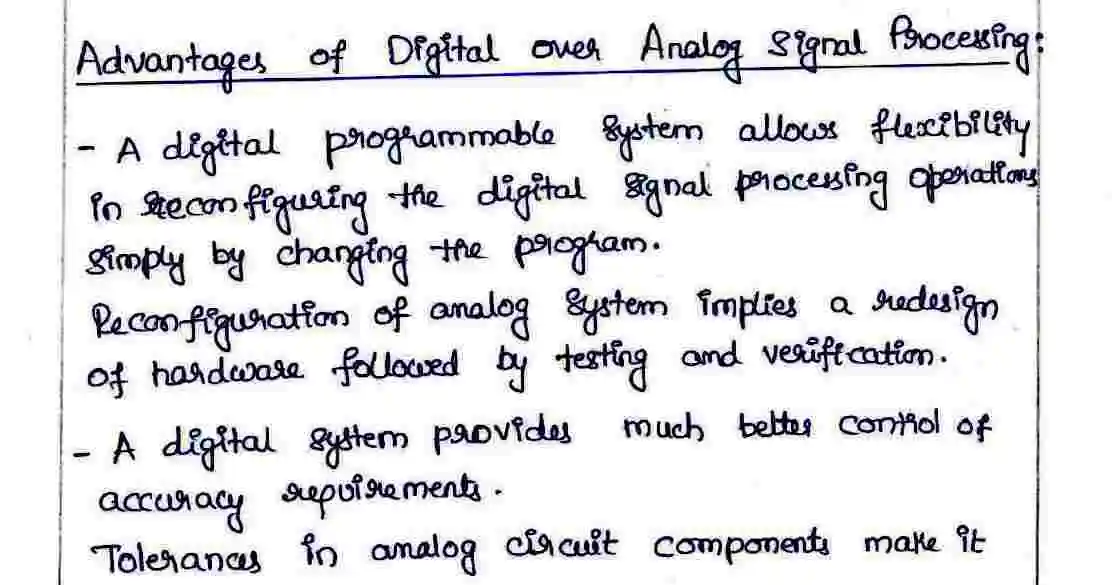 Advantages of Digital over Analog Signal Processing:
- A digital programmable system allows flexibility
in reconfiguring the digital signal processing operations
simply by changing the program.
Reconfiguration of analog system implies a redesign
of hardware followed by testing and verification.
- A digital system provides much better control of
accuracy requirements.
Tolerances in analog circuit components make it